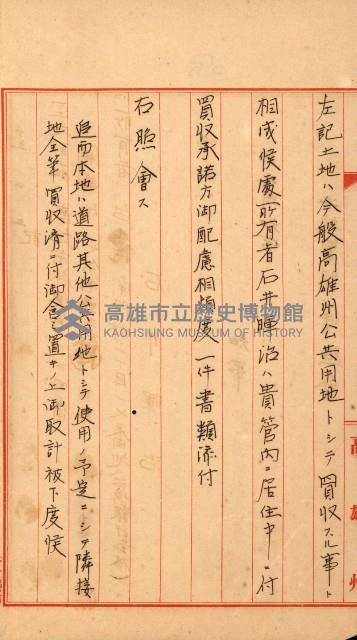 左記土地ハ今般高雄州公共用地トシテ買収スル事ト
相成候處所有者石井暉治ハ貴管内ニ居住中ニ付
買収承諾方御配慮相煩度一件書類添付
右照會ス
追而本地ハ道路其他公共用地トシテ使用ノ予定ニシテ隣接
地全筆買収済ニ付御含置キノ上御取計被下度候
高雄州
高雄市立歷史博物館
KAOHSIUNG MUSEUM OF HISTORY